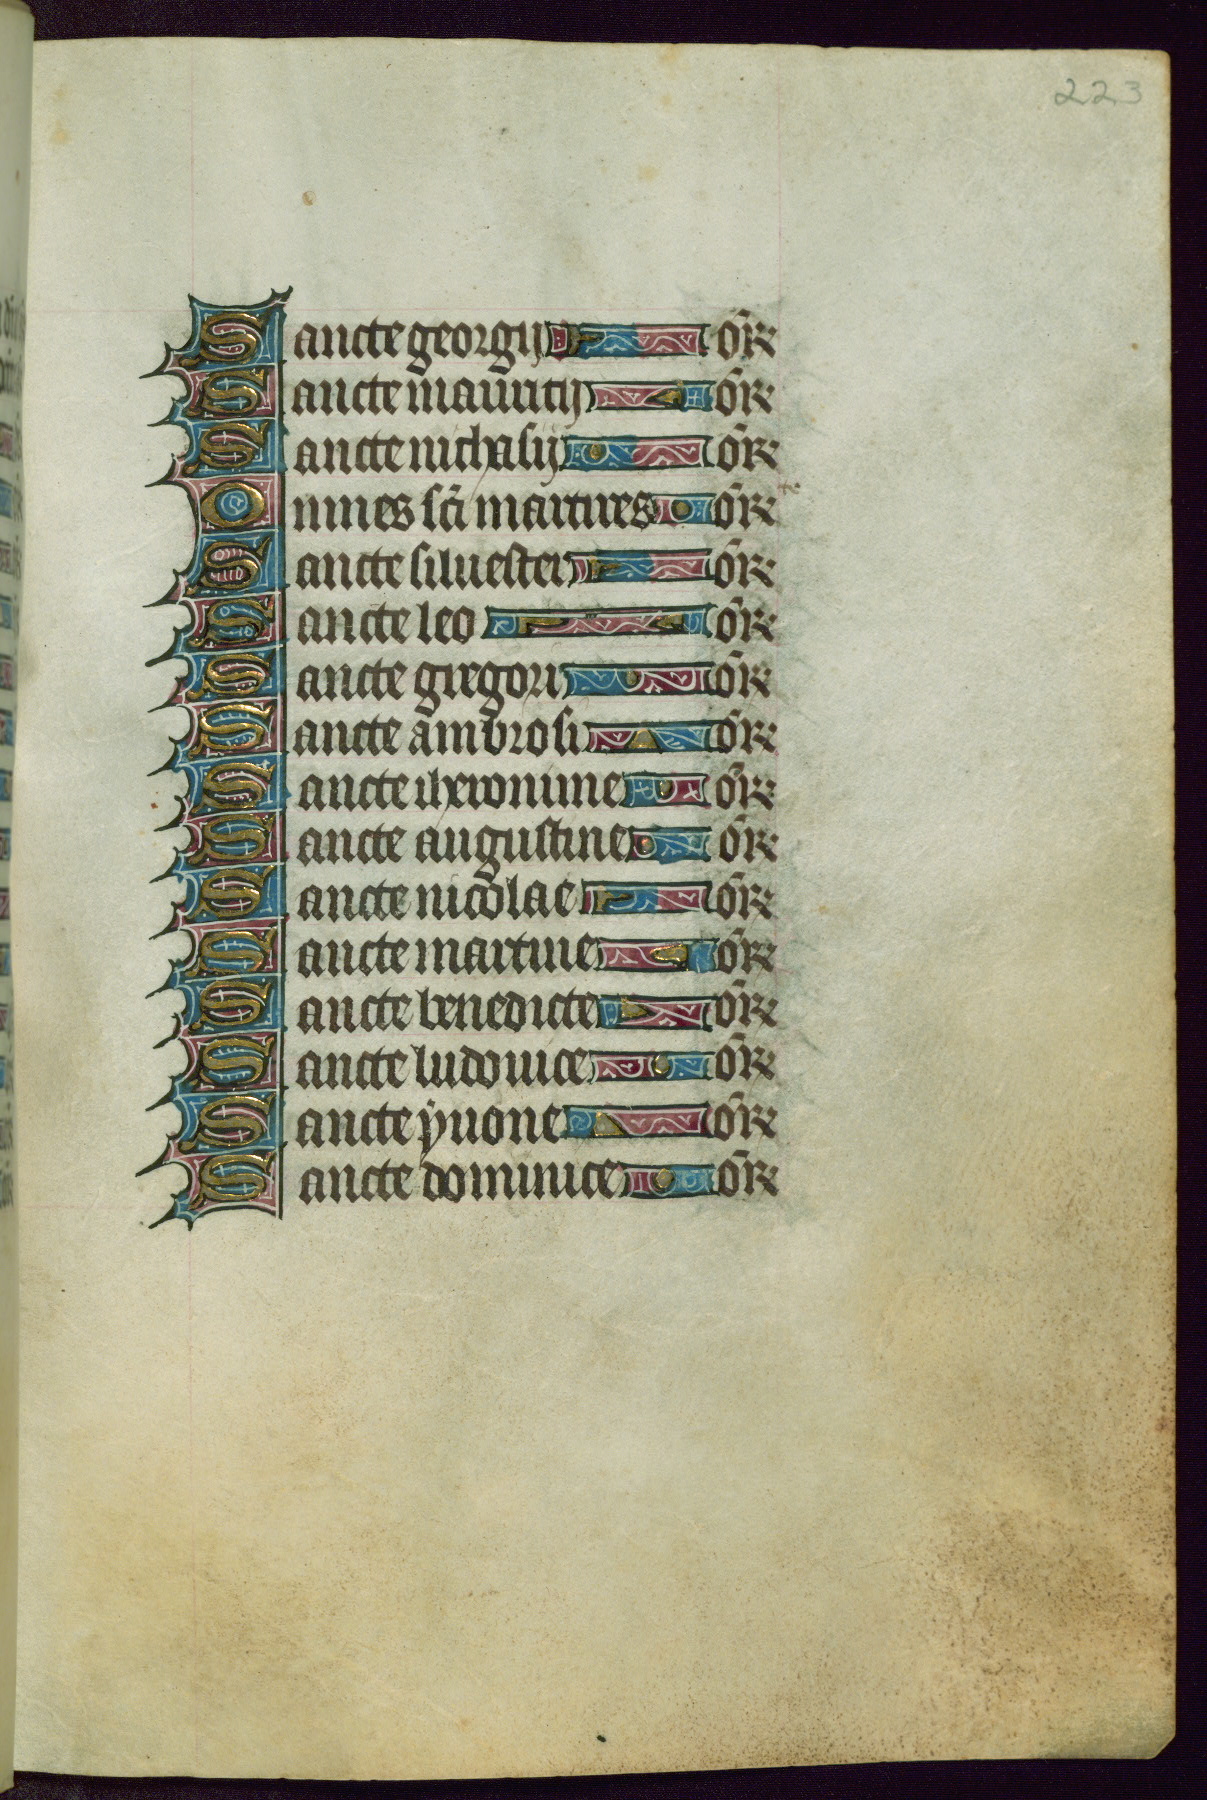 223
Sancte georgij or̄
Sancte mauritij or̄
Sancte nichasij or̄
Omnes sc̄i martires or̄
Sancte siluester or̄
Sancte leo or̄
Sancte gregori or̄
Sancte ambrosi or̄
Sancte iheronime or̄
Sancte augustine or̄
Sancte nicolae or̄
Sancte martine or̄
Sancte benedicte or̄
Sancte ludouice or̄
Sancte ẏuone or̄
Sancte dominice or̄